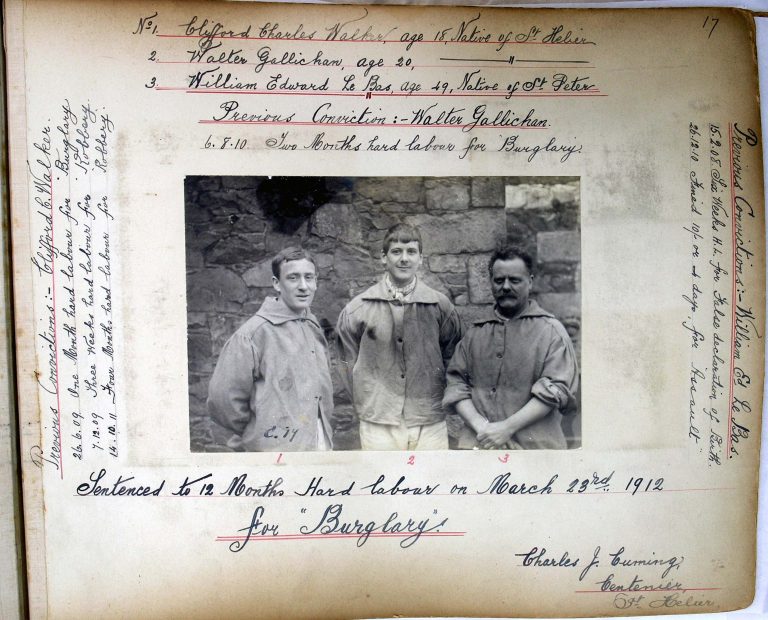 17
No 1. Clifford Charles Walker, age 18, Native of St Helier
2. Walter Gallichan, age 20, —— " ——
3. William Edward Le Bas, age 49, Native of St Peter
Previous Conviction :- Walter Gallichan.
6. 8. 10. Two Months hard labour for "Burglary"
Previous Convictions :- Clifford C. Walker.
26. 6. 09. One Month hard labour for Burglary
7. 12. 09 Three Weeks hard labour for Robbery
14. 10. 11 Four Months hard labour for Robbery.
Previous Convictions :- William Ed Le Bas.
15. 2. 08. Six Weeks H. L. for False declaration of Birth.
26. 12. 10 Fined 10/- or 4 days, for Assault
1 2 3
Sentenced to 12 Months Hard labour on March 23rd 1912
for "Burglary".
Charles J. Cuming,
Centenier,
St Helier